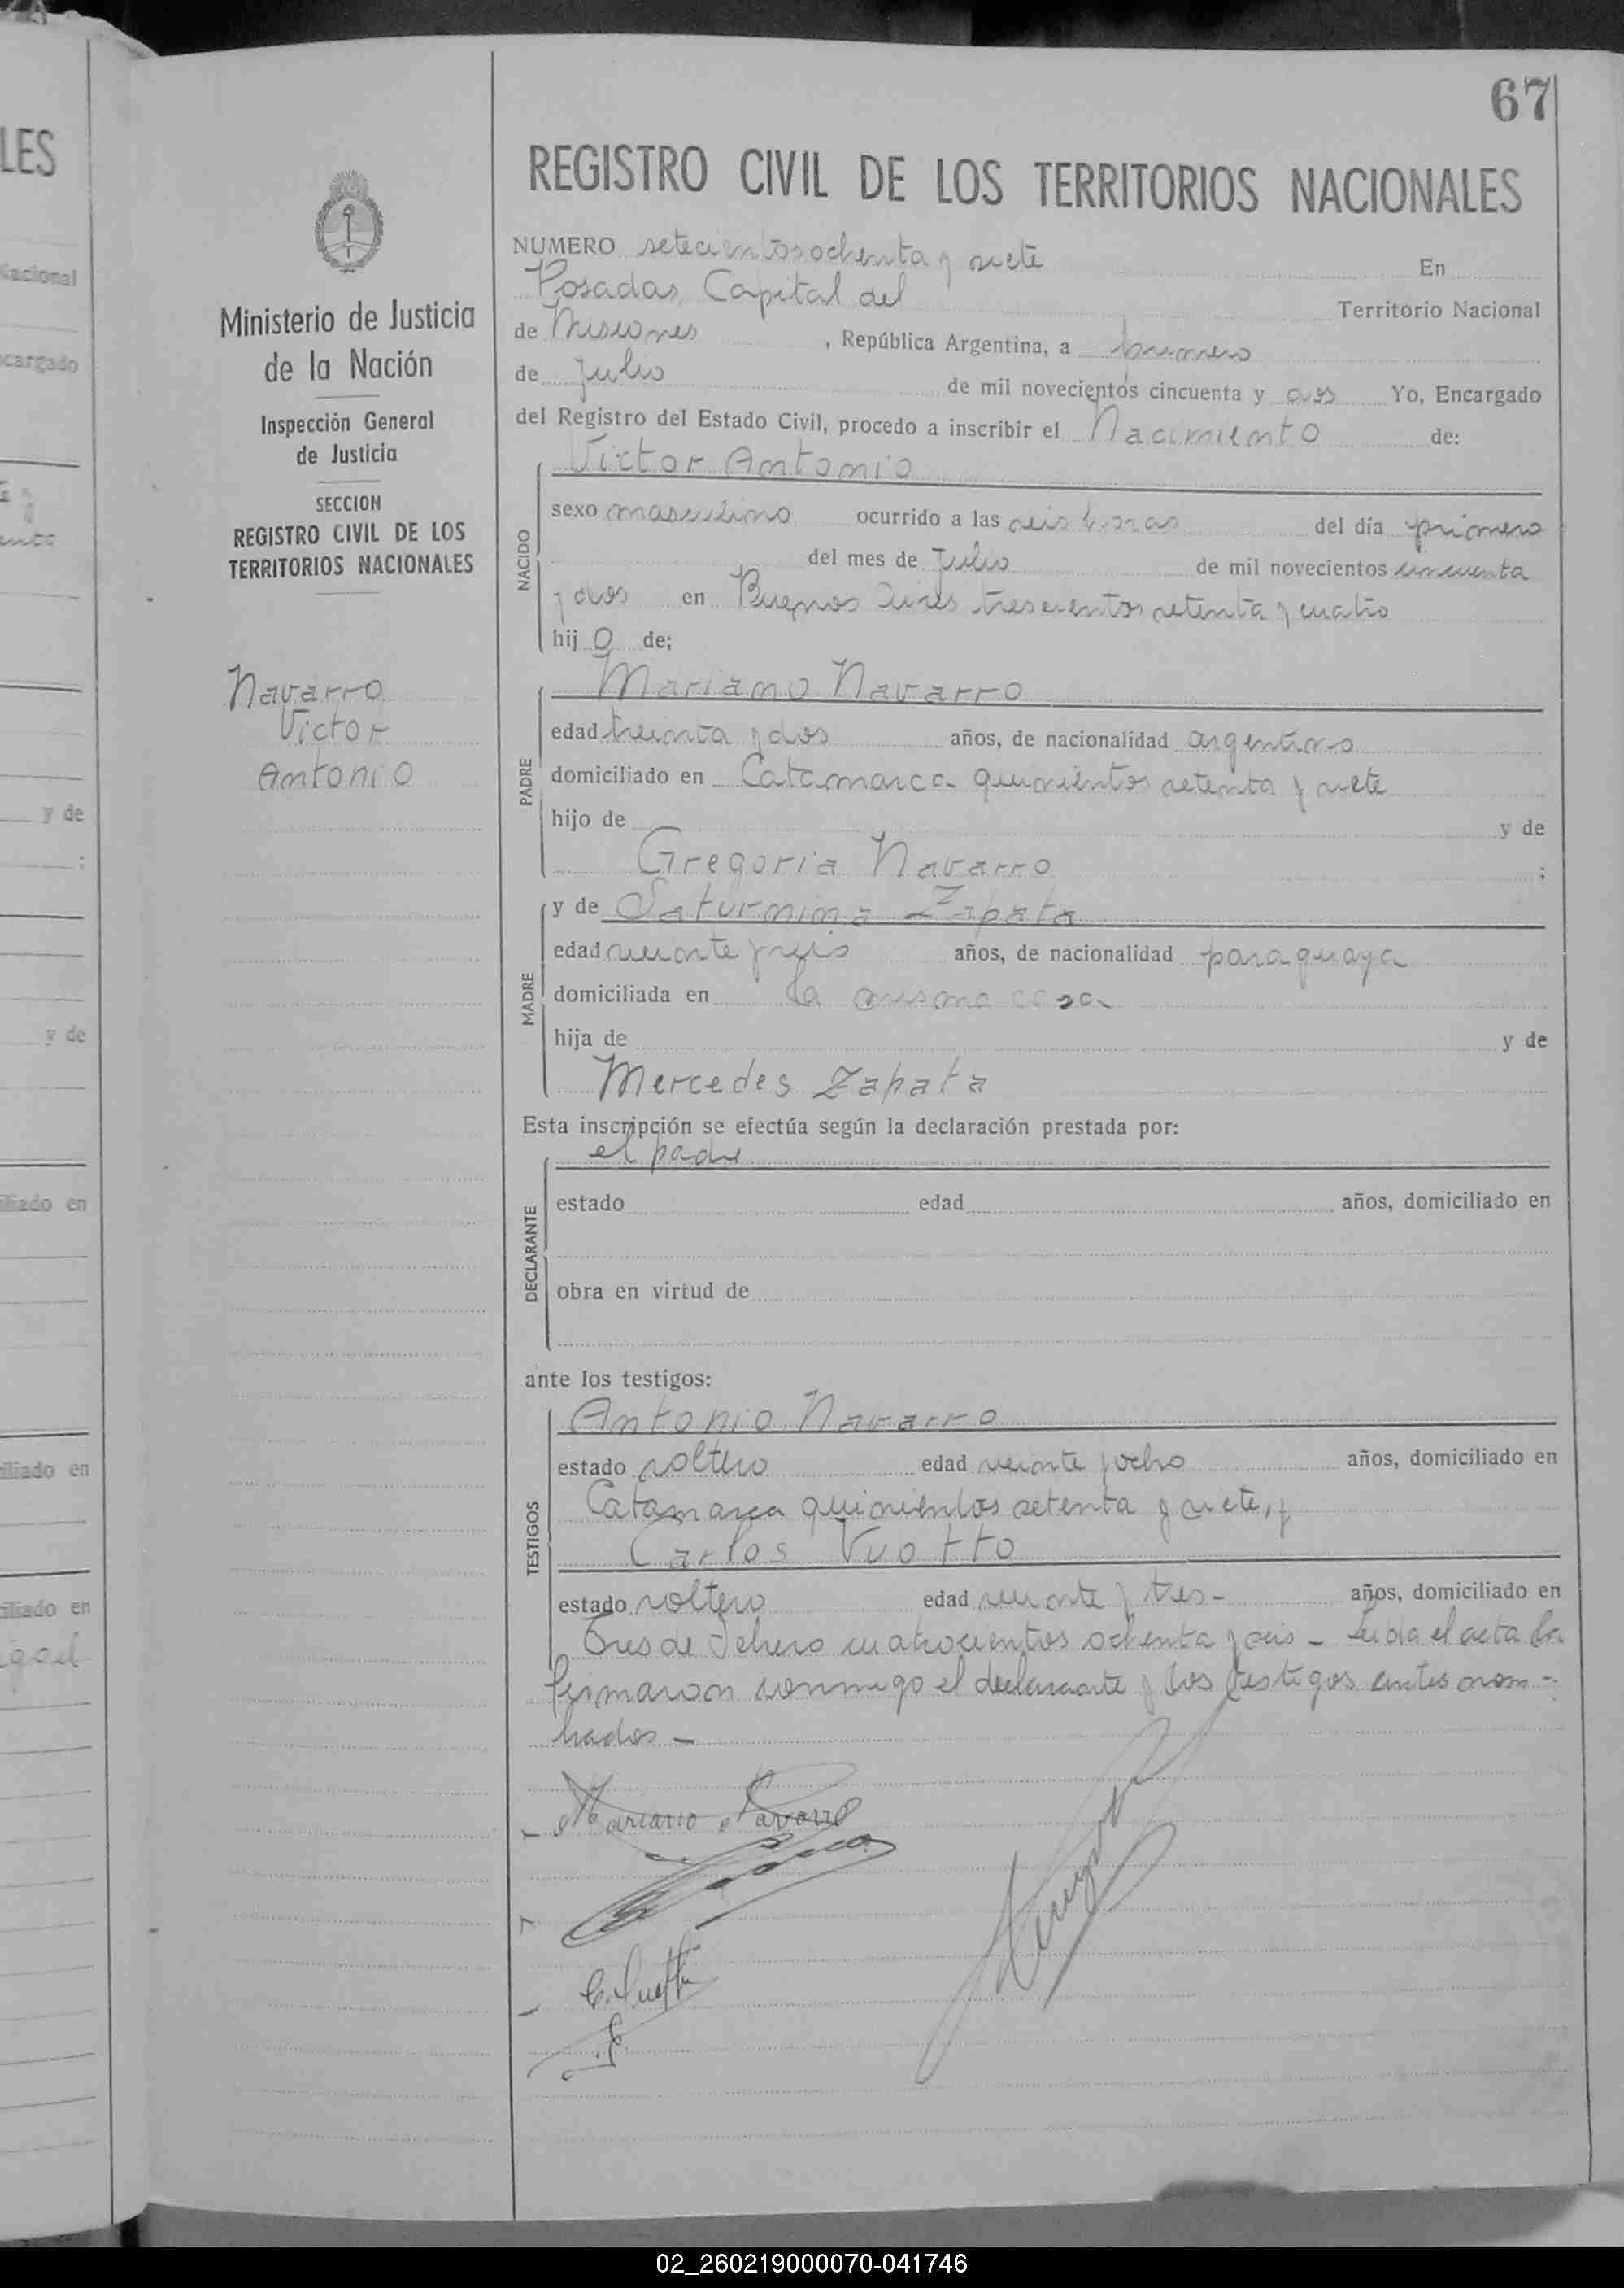 67
REGISTRO CIVIL DE LOS TERRITORIOS NACIONALES
NUMERO setecientos ochenta y siete En
Posadas, Capital del Territorio Nacional
de Misiones, República Argentina, a primero
de Julio de mil novecientos cincuenta y dos Yo, Encargado
del Registro del Estado Civil, procedo a inscribir el Nacimiento de:
Victor Antonio
NACIDO
sexo masculino ocurrido a las seis horas del día primero
del mes de Julio de mil novecientos cincuenta
y dos en Buenos Aires trescientos setenta y cuatro
hijo de;
Mariano Navarro
PADRE
edad treinta y dos años, de nacionalidad argentino
domiciliado en Catamarca quinientos setenta y siete
hijo de y de
Gregoria Navarro ;
y de Saturnina Zapata
MADRE
edad veinte y seis años, de nacionalidad paraguaya
domiciliada en la misma casa
hija de y de
Mercedes Zapata
Esta inscripción se efectúa según la declaración prestada por:
el padre
DECLARANTE
estado edad años, domiciliado en
obra en virtud de
ante los testigos:
Antonio Navarro
TESTIGOS
estado soltero edad veinte y ocho años, domiciliado en
Catamarca quinientos setenta y siete, y
Carlos Vuotto
estado soltero edad veinte y tres - años, domiciliado en
Tres de Febrero cuatrocientos ochenta y seis - Leida el acta la
firmaron conmigo el declarante y los testigos antes nom-
brados -
Mariano Navarro
Ministerio de Justicia
de la Nación
Inspección General
de Justicia
SECCION
REGISTRO CIVIL DE LOS
TERRITORIOS NACIONALES
Navarro
Victor
Antonio
LES
Nacional
cargado
y de
;
y de
iliado en
iliado en
iliado en
02_260219000070-041746